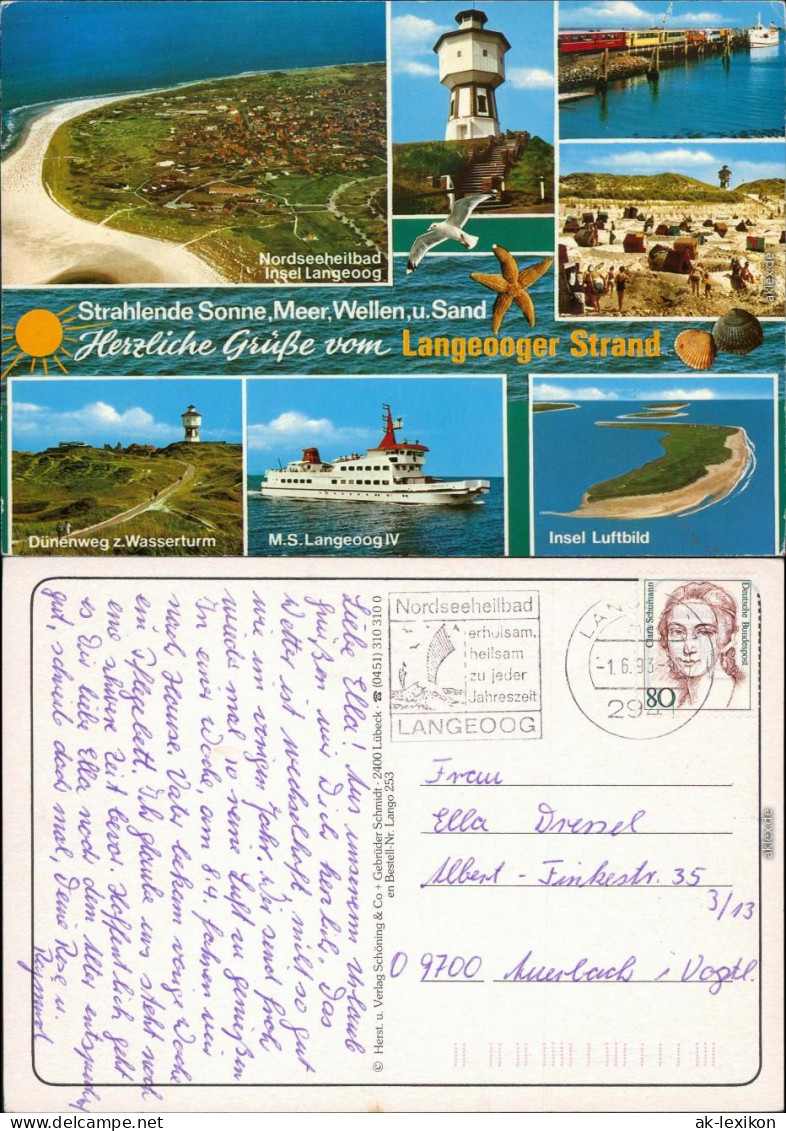 Nordseeheilbad
Insel Langeoog
Strahlende Sonne, Meer, Wellen, u. Sand
Herzliche Grüße vom Langeooger Strand
Dünenweg z. Wasserturm
M.S. Langeoog IV
Insel Luftbild
Liebe Ella! Aus unserem Urlaub
grüßen wir Dich herzlich. Das
Wetter ist wechselhaft, nicht so gut
wie im vorigen Jahr. Wir sind froh
wieder mal so reine Luft zu genießen
In einer Woche, am 8.4. fahren wir
nach Hause. Vater bekam vorige Woche
ein Pflegebett. Ich glaube uns steht noch
eine schwere Zeit bevor. Hoffentlich geht
es Dir liebe Ella noch dem Alter entsprechend
gut, schreib doch mal, Deine Rose u.
© Herst. u. Verlag Schöning & Co + Gebrüder Schmidt · 2400 Lübeck · ☎ (0451) 310 310 0
en Bestell-Nr. Lango 253
Nordseeheilbad
erholsam,
heilsam
zu jeder
Jahreszeit
LANGEOOG
-1.6.93-
Clara Schumann
Deutsche Bundespost
80
Frau
Ella Dressel
Albert-Finkestr. 35
3/13
O 9700 Auerbach i. Vogtl.
aklex.de
aklex.de
ak-lexikon